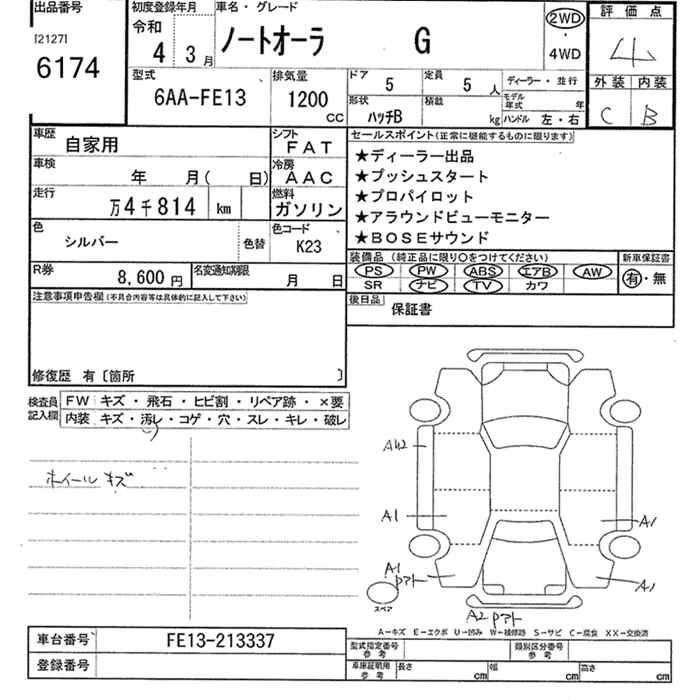 出品番号
[2127]
6174
初度登録年月
令和
4年 3月
車名・グレード
ノートオーラ G
2WD
・
4WD
評価点
4
外装 内装
C B
型式
6AA-FE13
排気量
1200
CC
ドア
5
定員
5 人
形状
ハッチB
積載
kg
ディーラー・並行
モデル年式 年
ハンドル 左・右
車歴
自家用
シフト
FAT
車検
年 月( 日)
冷房
AAC
走行
万4千814 km
燃料
ガソリン
色
シルバー
色替
色コード
K23
R券
8,600 円
名変通知期限
月 日
セールスポイント(正常に機能するものに限ります)
★ディーラー出品
★プッシュスタート
★プロパイロット
★アラウンドビューモニター
★BOSEサウンド
装備品(純正品に限り○をつけてください)
PS PW ABS エアB AW
SR ナビ TV カワ
新車保証書
有・無
後日品
保証書
注意事項申告欄(不具合内容等は具体的に記入して下さい)
修復歴 有〔箇所 〕
検査員記入欄
FW キズ・飛石・ヒビ割・リペア跡・×要
内装 キズ・汚レ・コゲ・穴・スレ・キレ・破レ
ホイールキズ
AW2
A1
A1
A1
アト
A1
スペア
A2 アト
A-キズ E-エクボ U-凹み W-補修跡 S-サビ C-腐食 XX-交換済
車台番号
FE13-213337
登録番号
型式指定番号
参考
類別区分番号
参考
車庫証明用
参考
長さ cm 幅 cm 高さ cm